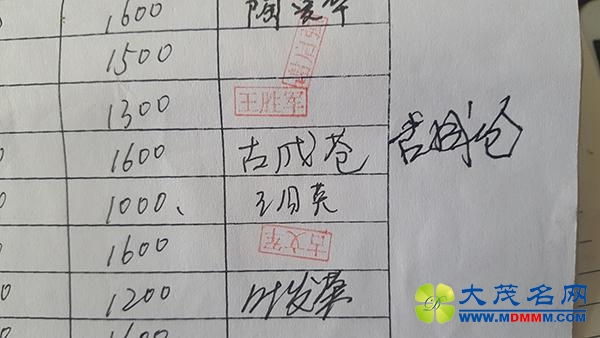 1600
1500
1300 王胜军
1600 古成苍
1000、 王月英
1600 古文军
1200 叶发
1600
大茂名网
WWW.MDMMM.COM